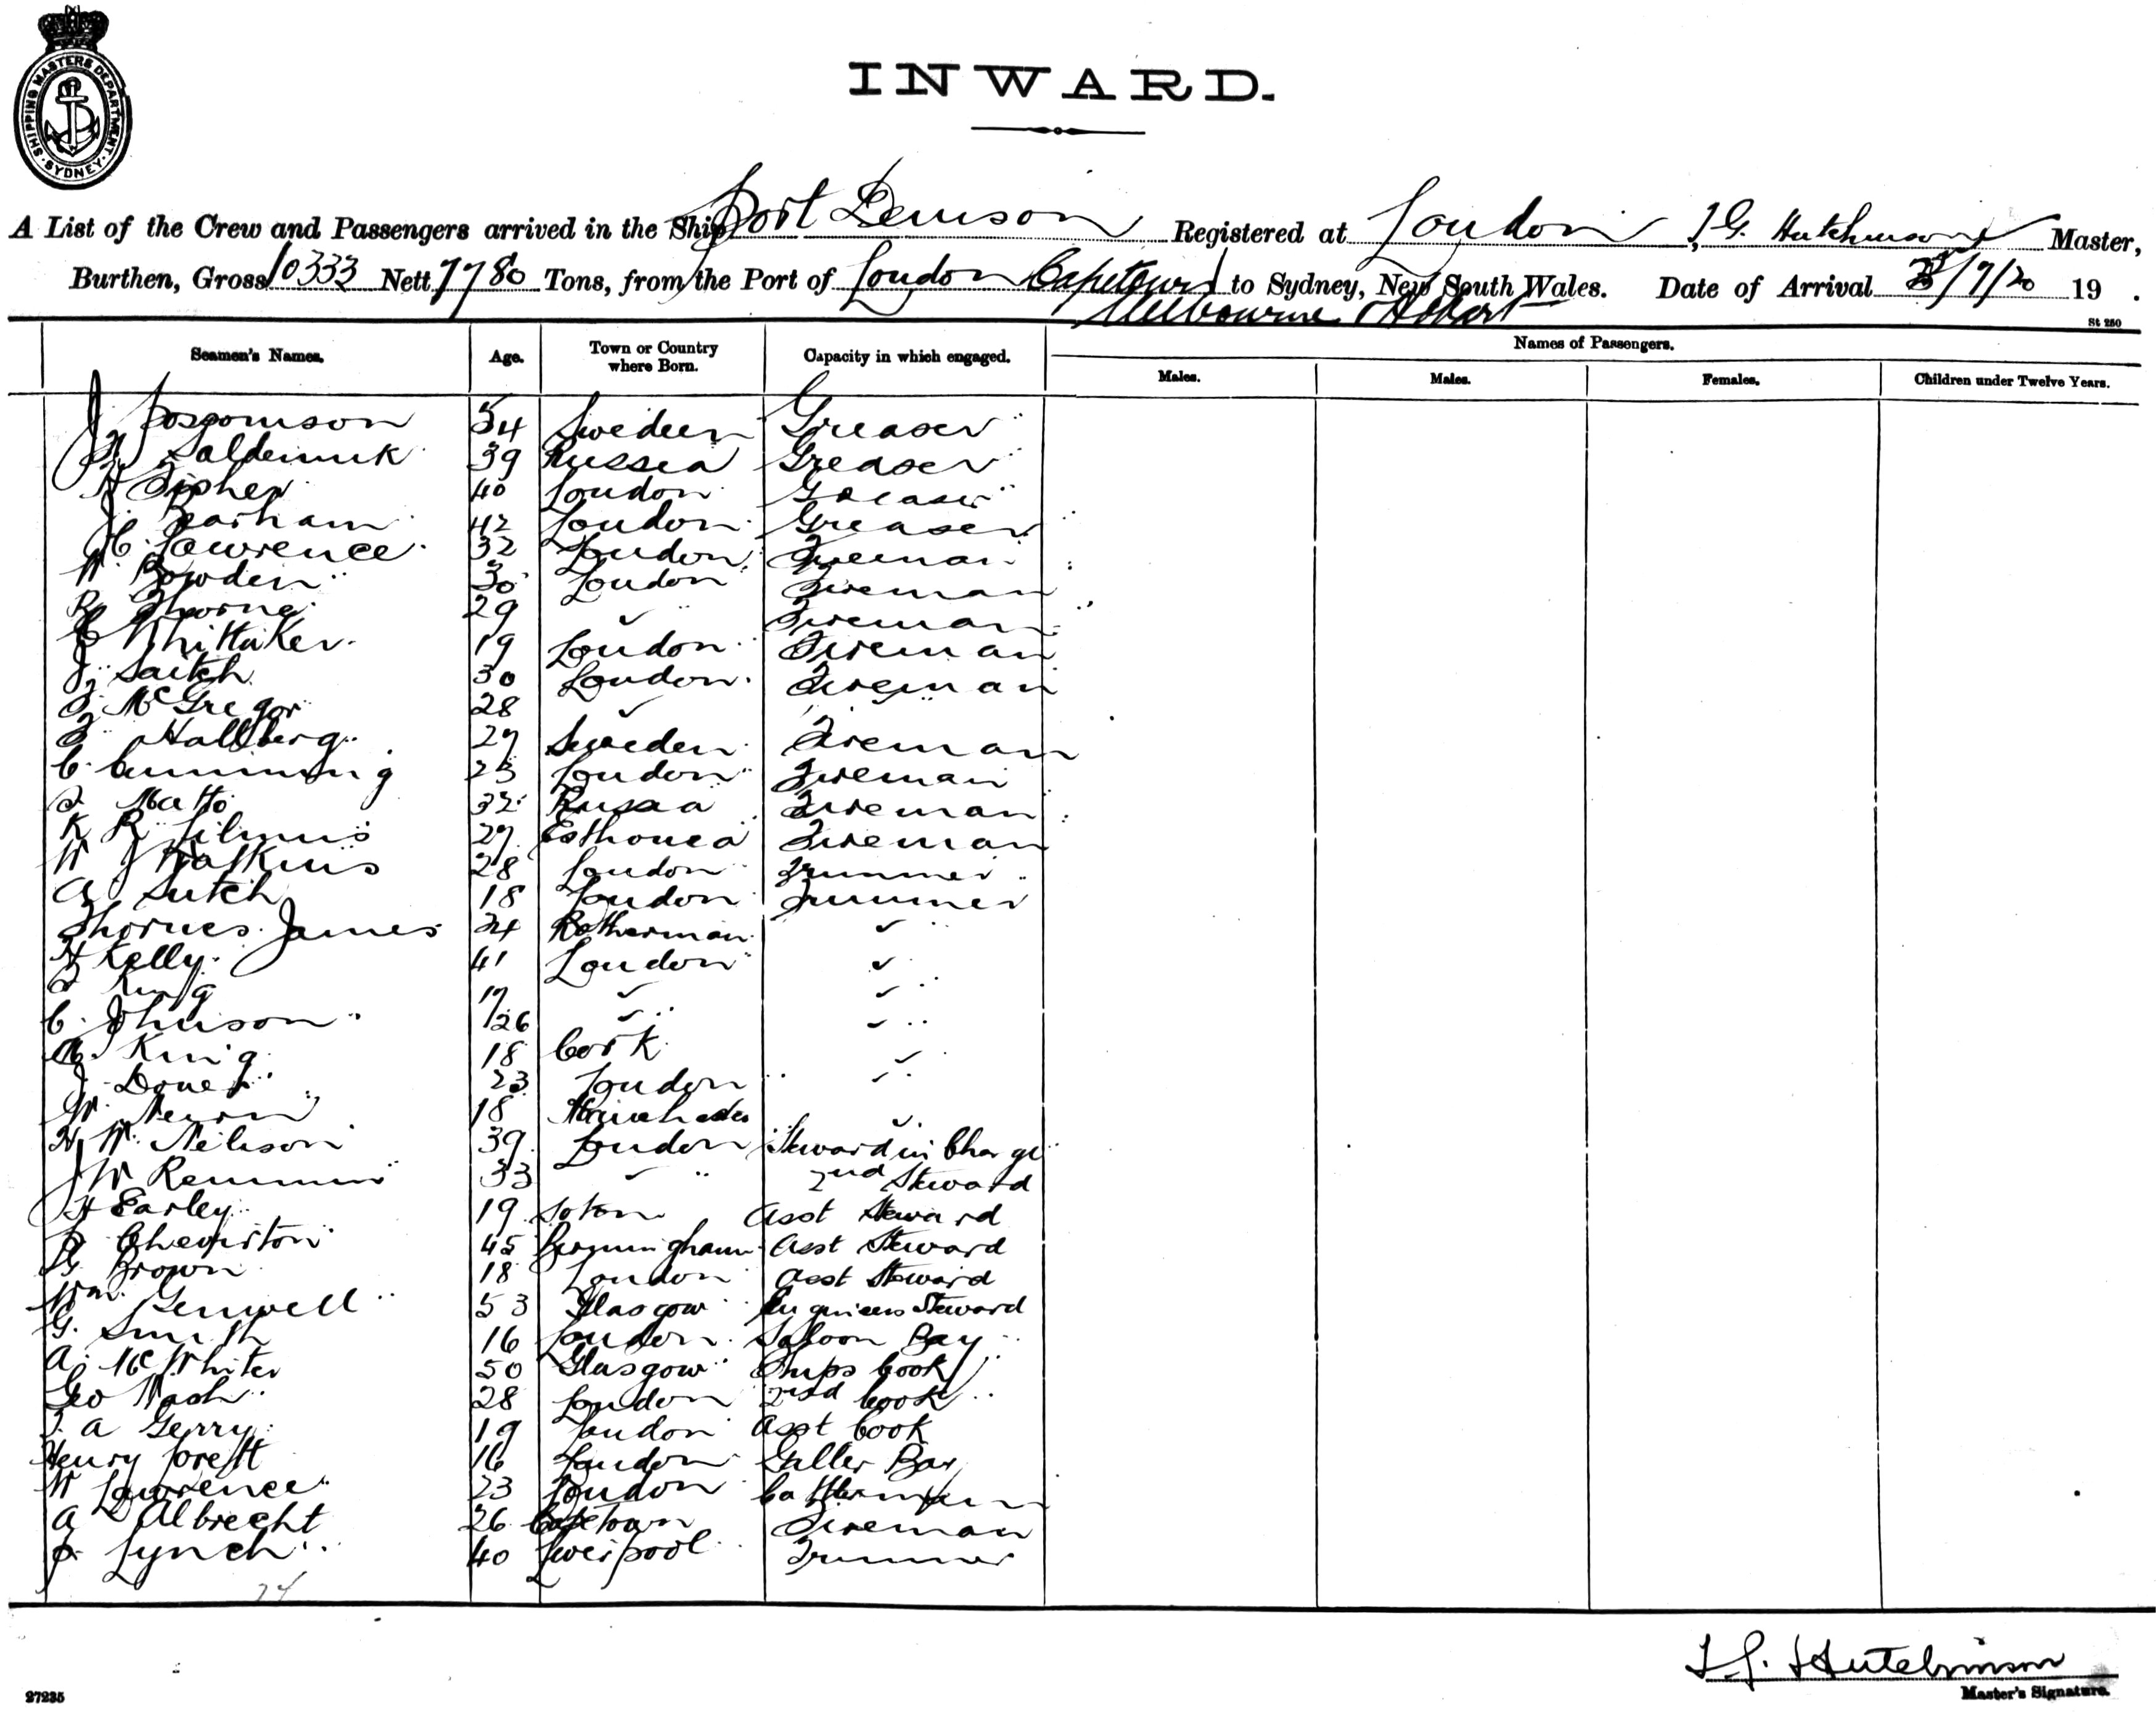 SHIPPING MASTERS DEPARTMENT · SYDNEY ·
INWARD.
A List of the Crew and Passengers arrived in the Ship Port Denison Registered at London J. G. Hutchinson Master,
Burthen, Gross 10333 Nett 7780 Tons, from the Port of London Capetown to Sydney, New South Wales. Date of Arrival /7/20 19 .
Melbourne Hobart
St 250
Seamen's Names. Age. Town or Country where Born. Capacity in which engaged. Names of Passengers.
Males. Males. Females. Children under Twelve Years.
J 54 Sweden Greaser
Saldemuk 39 Russia Greaser
H Fisher 40 London Greaser
J. Barham 42 London Greaser
C. Lawrence 32 London Fireman
W. Bowden 30 London Fireman
R Thorne 29 " Fireman
Whittaker 19 London Fireman
J. Saitch 30 London Fireman
McGregor 28 "
Hallberg 27 Sweden Fireman
C. Cumming 23 London Fireman
Matto 32 Russia Fireman
K R Silmus 27 Esthonea Fireman
W J Watkins 28 London Trimmer
A Sutch 18 London Trimmer
Thornes James 24 Rotherman "
H Kelly 41 London "
King 17 " "
C. Johnson 26 " "
King 18 Cork "
J. Done 23 London "
W. 18 Manchester "
H. W. Neilson 39 London Steward in Charge
J W Remmin 33 " 2nd Steward
H Earley 19 Soton Asst Steward
Cheverton 45 Birmingham Asst Steward
G. Brown 18 London Asst Steward
Wm. Genwell 53 Glasgow Engineers Steward
G. Smith 16 London Saloon Boy
A. McWhiter 50 Glasgow Ships Cook
Geo Nash 28 London 2nd Cook
J. A Gerry 19 London Asst Cook
Henry 16 London Galler Boy
W Lawrence 23 London Cattleman
A Albrecht 26 Capetown Fireman
P. Lynch 40 Liverpool Trimmer
J G. Hutchinson
Master's Signature.
27235